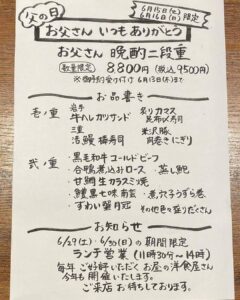 父の日
6月15日(土)
6月16日(日)限定
お父さん いつもありがとう
お父さん 晩酌二段重
数量限定 8800円(税込9500円)
※御予約受け付け6月13日(木)まで
お品書き
壱ノ重
岩手
牛ヒレカリサンド
三重
活鰻棒寿司
炙りカマス
昆布〆寿司
米沢豚
角巻きにぎり
弐ノ重
・黒毛和牛コールドビーフ
・合鴨煮込みロース ・蒸し鮑
・甘鯛生カラスミ焼
・鱧黒七味南蛮 ・煮穴子うずら巻
・ずわい蟹月冠
その他色々盛りだくさん
お知らせ
6/29(土)・6/30(日)の期間限定
ランチ営業(11時30分~14時)
毎年ご好評いただくお盆の洋食屋さん
今年も開催いたします。
ご来店お待ちしております。